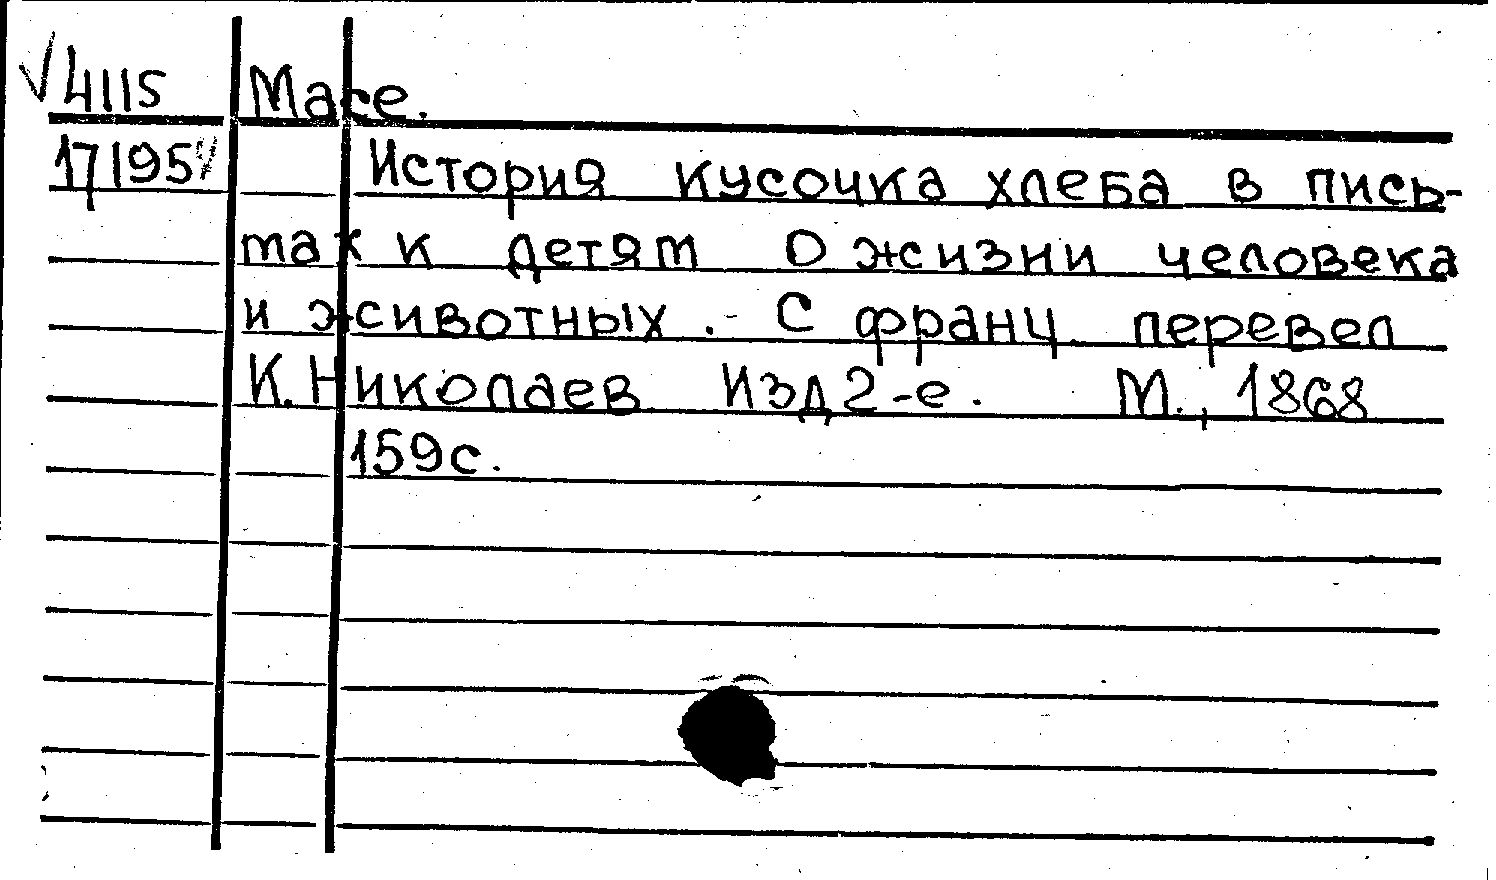 V 4115 Масе.
17195 История кусочка хлеба в пись-
тах к детям о жизни человека
и животных. - С франц. перевел
К. Николаев Изд 2-е. М., 1868
159с.